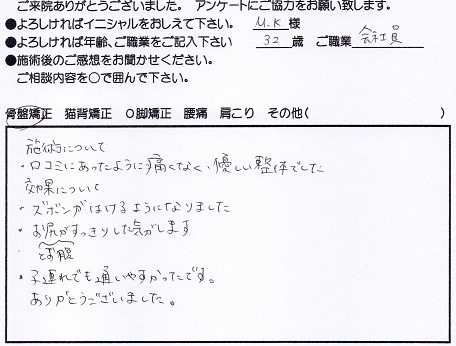 ご来院ありがとうございました。 アンケートにご協力をお願い致します。
●よろしければイニシャルをおしえて下さい。 M.K 様
●よろしければ年齢、ご職業をご記入下さい 32 歳 ご職業 会社員
●施術後のご感想をお聞かせください。
ご相談内容を〇で囲んで下さい。
骨盤矯正 猫背矯正 O脚矯正 腰痛 肩こり その他( )
施術について
・口コミにあったように痛くなく、優しい整体でした
効果について
・ズボンがはけるようになりました
・お尻がすっきりした気がします
とお腹
・子連れでも通いやすかったです。
ありがとうございました。